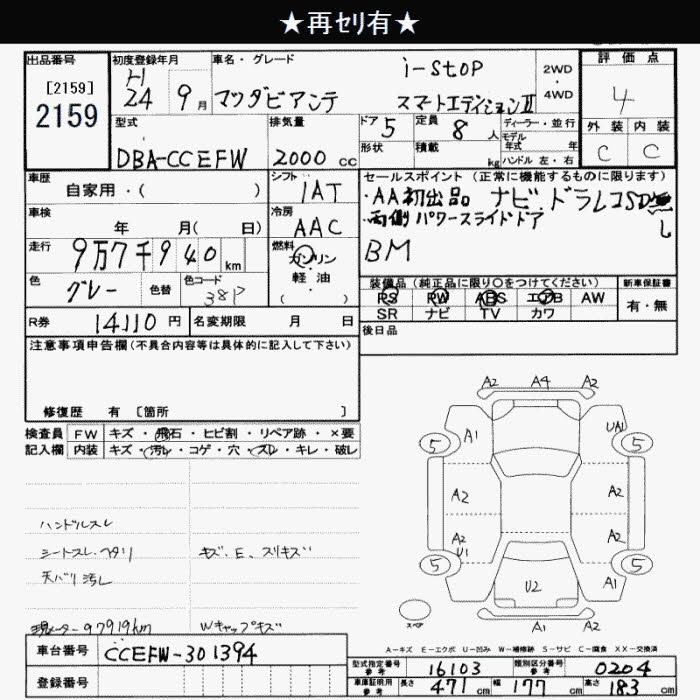 ★再ｾﾘ有★
出品番号
[2159]
2159
初度登録年月
H
24 9月
車名・グレード
i-stop
マツダビアンテ スマートエディションⅡ
2WD
・
4WD
評価点
4
外装 内装
C C
型式
DBA-CCEFW
排気量
2000 cc
ドア 5
定員 8 人
形状
積載 kg
ディーラー・並行
モデル
年式 年
ハンドル 左・右
車歴
自家用・( )
シフト
IAT
車検
年 月( 日)
冷房
AAC
走行
9万7千940 km
燃料
ガソリン
軽油
( )
色
グレー
色替
色コード
38P
R券 14110 円
名変期限 月 日
セールスポイント (正常に機能するものに限ります)
・AA初出品 ナビ・ドラレコSD無し
・両側パワースライドドア
BM
装備品(純正品に限り○をつけてください)
PS PW ABS エアB AW
SR ナビ TV カワ
新車保証書
有・無
後日品
注意事項申告欄(不具合内容等は具体的に記入して下さい)
修復歴 有 [箇所 ]
検査員 FW キズ・飛石・ヒビ割・リペア跡・×要
記入欄 内装 キズ・汚レ・コゲ・穴・スレ・キレ・破レ
ハンドルスレ
シートスレ・ヘタリ
天バリ汚レ
現メーター97919km
キズ、E、スリキズ
Wキャップキズ
A2 A4 A2
5 A1 UA1 5
A2 A2
A2 A2
U1
5 U2 A1 5
スペア
A1 A2
A-キズ E-エクボ U-凹み W-補修跡 S-サビ C-腐食 XX-交換済
車台番号 CCEFW-301394
登録番号
型式指定番号
参考
16103
類別区分番号
参考
0204
車庫証明用
参考
長さ 471 cm 幅 177 cm 高さ 183 cm